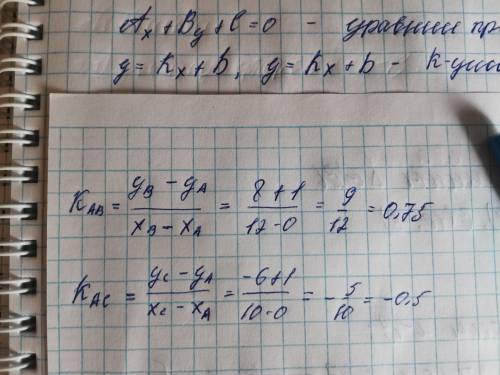 Ax + By + C = 0 - уравнии
y = kx + b, y = kx + b - k-
K_AB = (y_B - y_A)/(x_B - x_A) = (8 + 1)/(12 - 0) = 9/12 = 0,75
K_AC = (y_C - y_A)/(x_C - x_A) = (-6 + 1)/(10 - 0) = -5/10 = -0,5